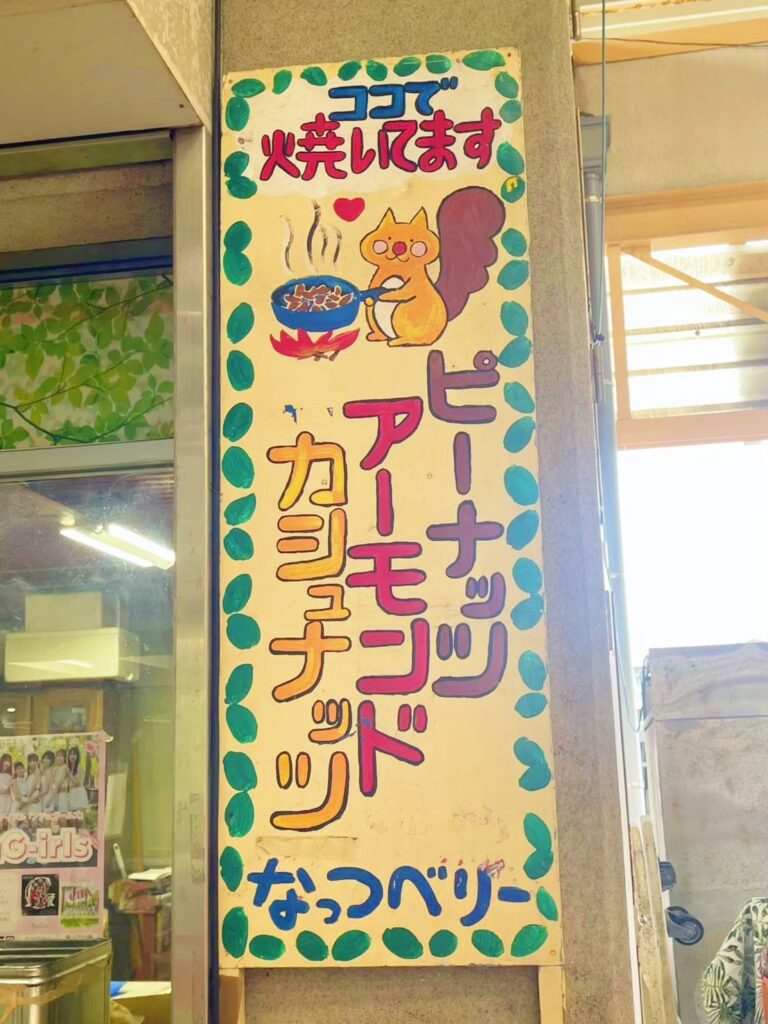 ココで
焼いてます
ピーナッツ
アーモンド
カシュナッツ
なっつベリー
G-irls